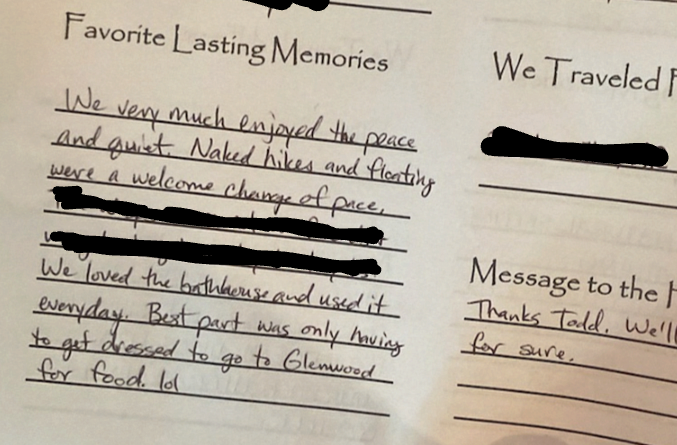 Favorite Lasting Memories
We very much enjoyed the peace
and quiet. Naked hikes and floating
were a welcome change of pace.
We loved the bathhouse and used it
everyday. Best part was only having
to get dressed to go to Glenwood
for food. lol
We Traveled F
Message to the H
Thanks Todd. We'll
for sure.